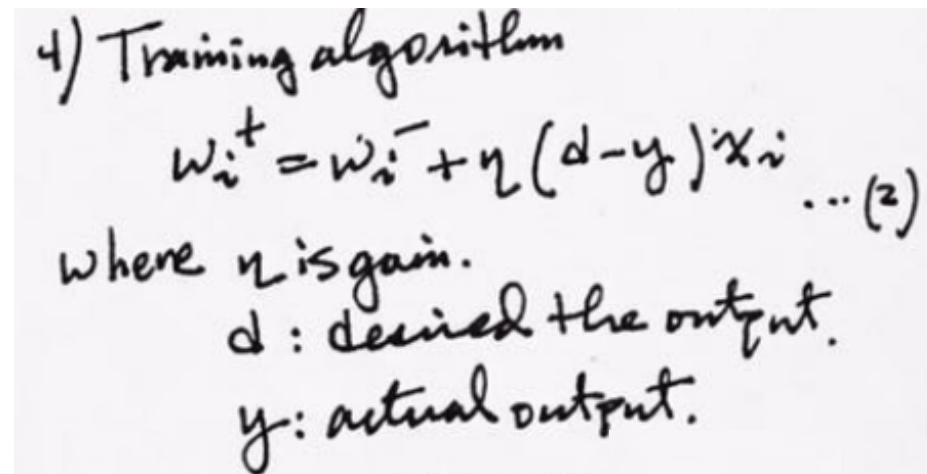 4) Training algorithm
wᵢ⁺ = wᵢ⁻ + η (d - y) xᵢ ... (2)
where η is gain.
d : desired the output.
y : actual output.